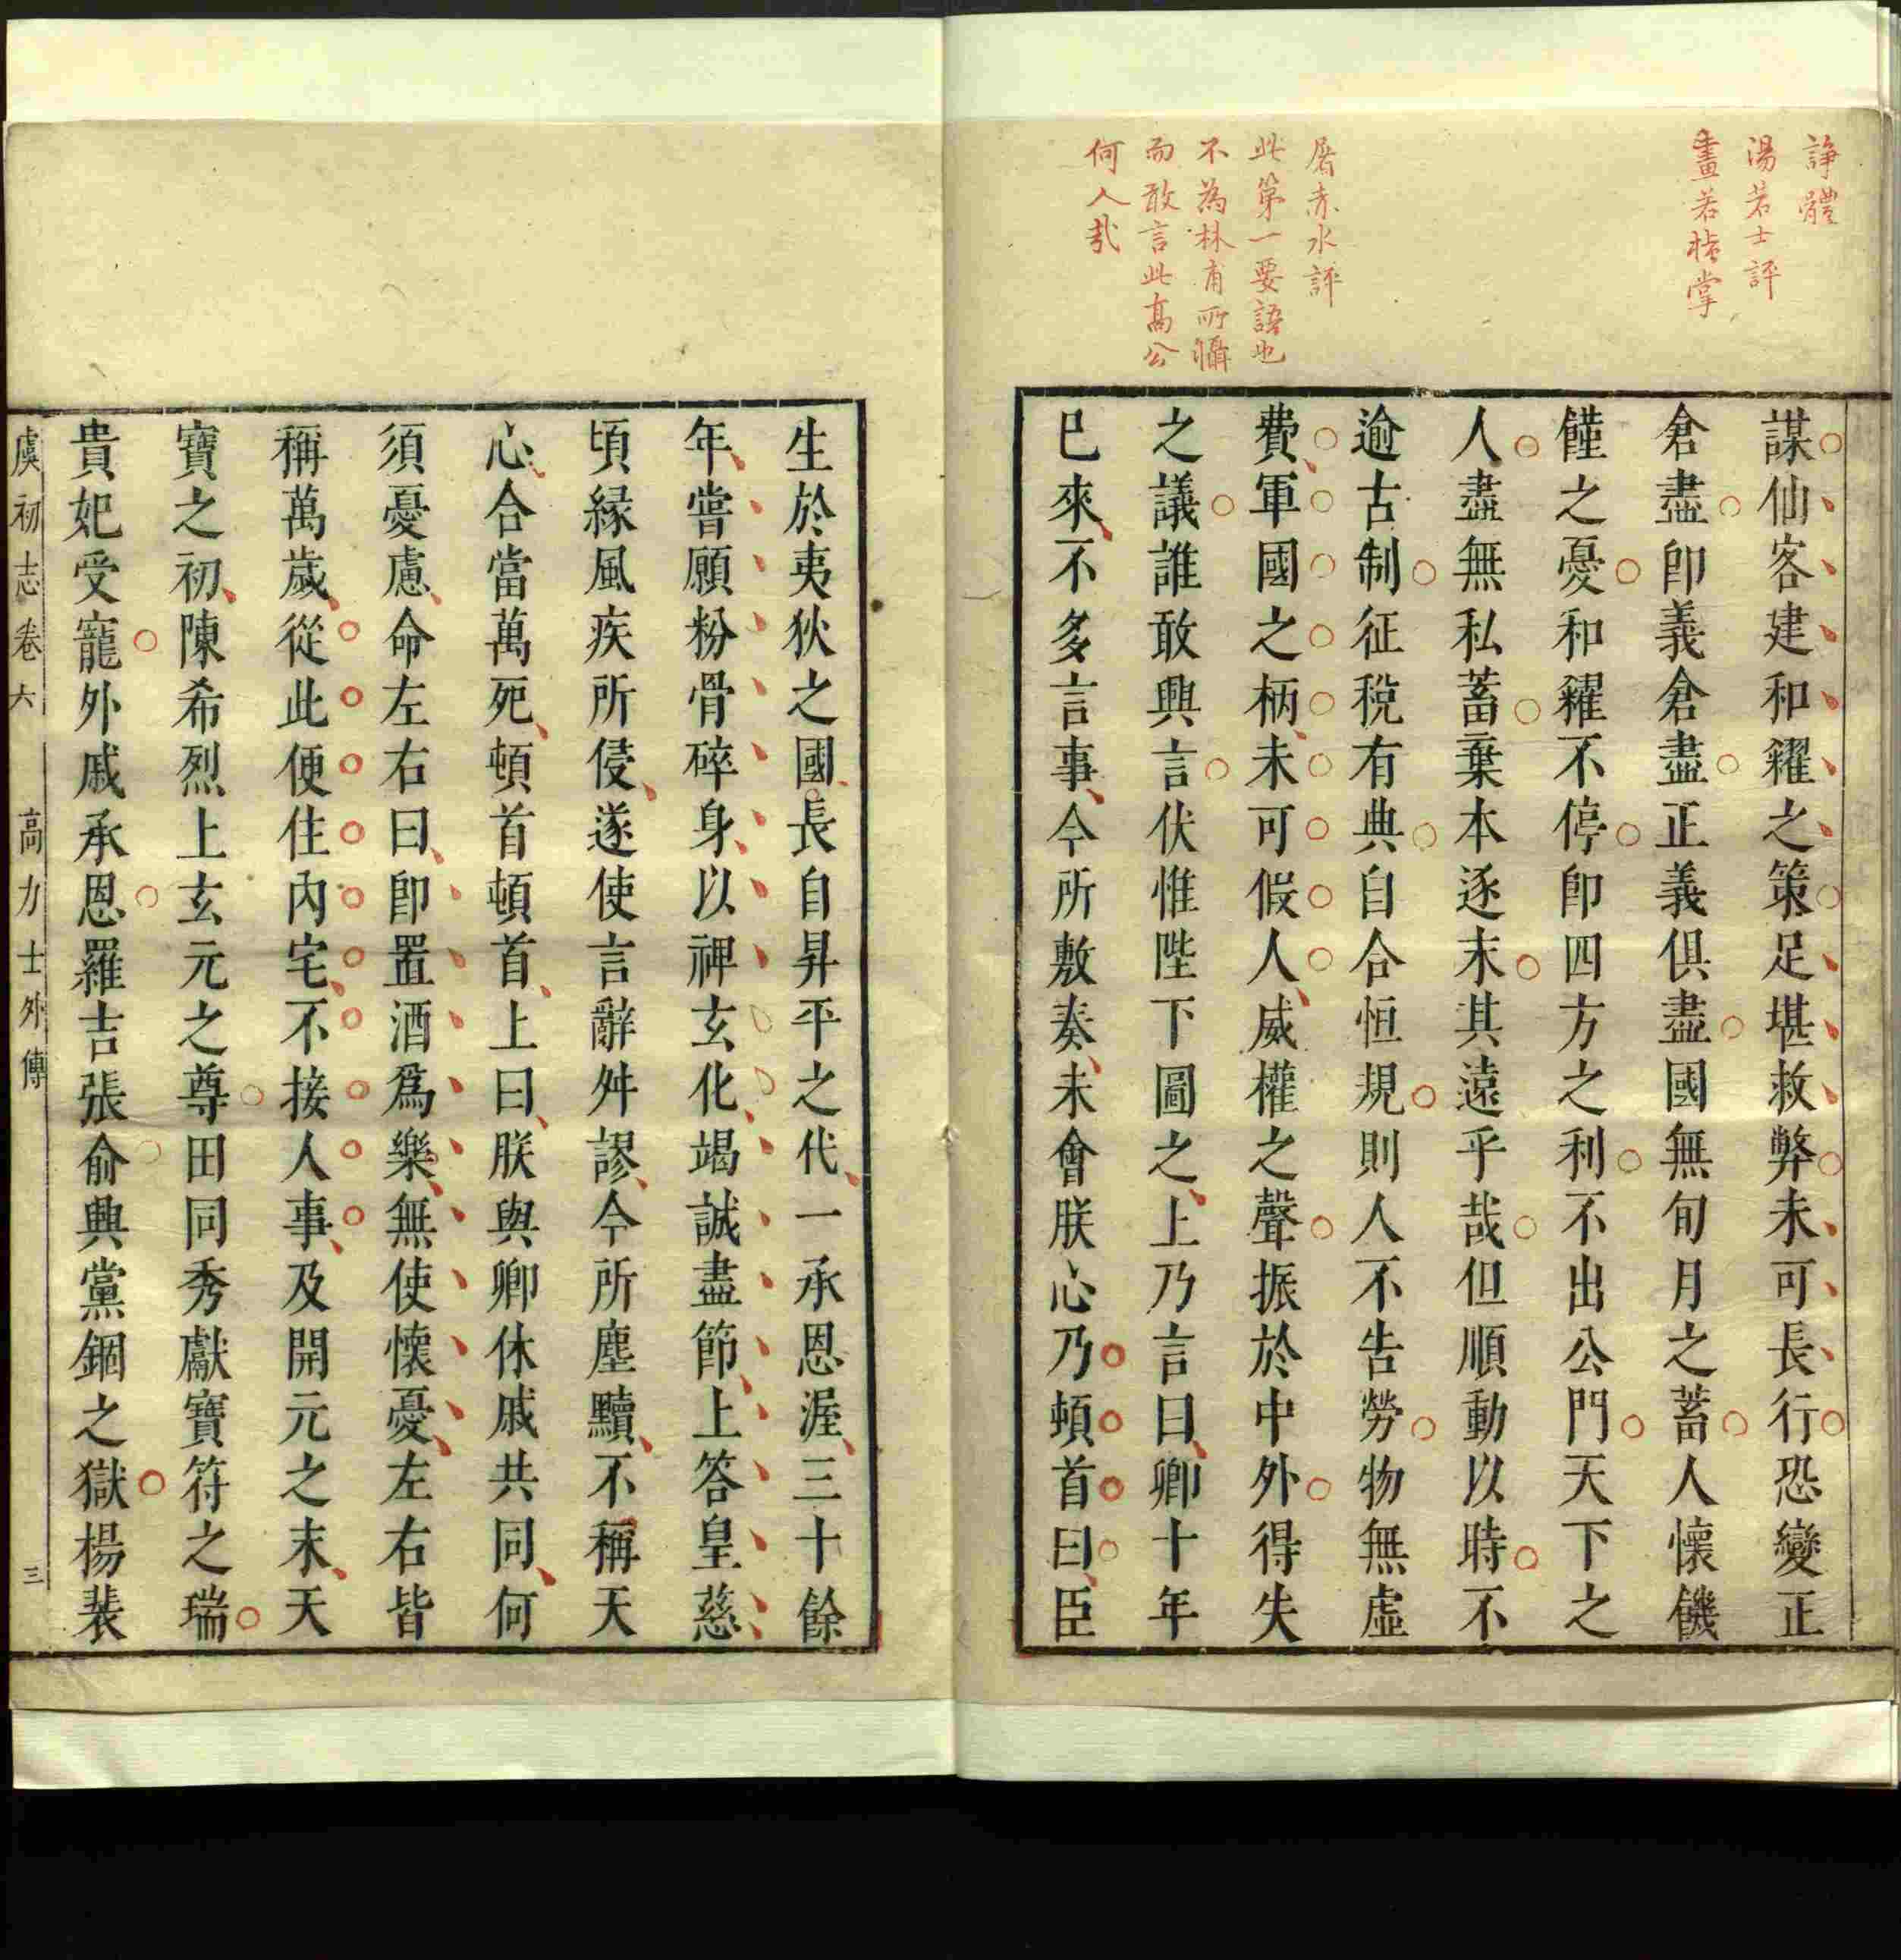 諍體
湯若士評
畫若指掌
屠赤水評
此第一要語也
不為林甫所懾
而敢言此高公
何人哉
謀仙客建和糴之策足堪救弊未可長行恐變正
倉盡卽義倉盡正義俱盡國無旬月之蓄人懷饑
饉之憂和糴不停卽四方之利不出公門天下之
人盡無私蓄棄本逐末其遠乎哉但順動以時不
逾古制征稅有典自合恒規則人不告勞物無虛
費軍國之柄未可假人威權之聲振於中外得失
之議誰敢興言伏惟陛下圖之上乃言曰卿十年
已來不多言事今所敷奏未會朕心乃頓首曰臣
生於夷狄之國長自昇平之代一承恩渥三十餘
年嘗願粉骨碎身以裨玄化竭誠盡節上答皇慈
頃緣風疾所侵遂使言辭舛謬今所塵黷不稱天
心合當萬死頓首頓首上曰朕與卿休戚共同何
須憂慮命左右曰卽置酒爲樂無使懷憂左右皆
稱萬歲從此便住內宅不接人事及開元之末天
寶之初陳希烈上玄元之尊田同秀獻寶符之瑞
貴妃受寵外戚承恩羅吉張俞興黨錮之獄楊裴
虞初志卷六 高力士外傳 三